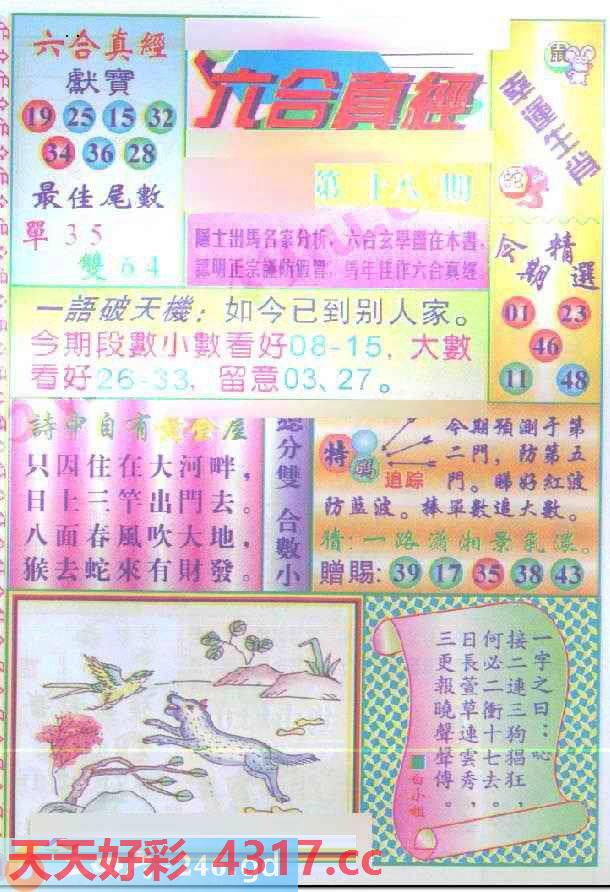 六合真經
獻寶
19 25 15 32
34 36 28
最佳尾數
單 3 5
雙 6 4
六合真經
第十八期
隱士出馬名家分析，六合玄學盡在本書。
認明正宗謹防假冒，馬年佳作六合真經
鼠
幸運生肖
蛇
今期精選
01 23
46
11 48
一語破天機：如今已到别人家。
今期段數小數看好08-15，大數
看好26-33，留意03、27。
詩中自有黃金屋
只因住在大河畔，
日上三竿出門去。
八面春風吹大地，
猴去蛇來有財發。
總分雙 合數小
特碼
追踪
今期預測于第
二門，防第五
門。睇好紅波
防蓝波。捧單數追大數。
猜：一路瀟湘景氣濃。
贈賜：39 17 35 38 43
一字之曰：吣
接二連三狗猖狂，
何必二衝十七去。
日長萱草連雲秀，
三更報曉聲聲傳。
白小姐
天天好彩 4317.cc
246
gd